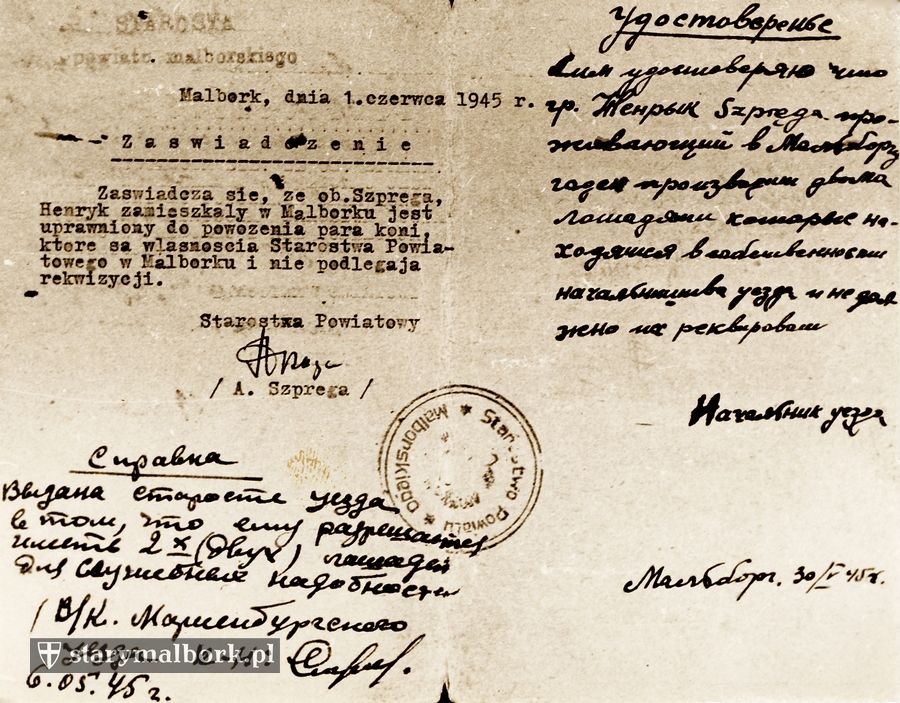 STAROSTA
powiatu malborskiego
Malbork, dnia 1.czerwca 1945 r.
Zaswiadczenie
Zaswiadcza sie, ze ob.Szprega,
Henryk zamieszkaly w Malborku jest
uprawniony do powozenia para koni,
ktore sa wlasnoscia Starostwa Powia-
towego w Malborku i nie podlegaja
rekwizycji.
Starostwa Powiatowy
/ A. Szprega /
Starostwo Powiatu
Malborskiego
Справка
Выдана старосте уезда
в том, что ему разрешается
иметь 2х (двух) лошадей
для служебных надобностей
В/К. Мариенбургского
уезда
6.05.45 г.
Удостоверенье
Сим удостоверяю что
гр. Женрык Szpręga про-
живающий в Мальборгу
годен производит двома
лошадями которые на-
ходятся в собственности
начальника уезда и не дол
жено их реквироват
Начальник уезда
Мальборг. 30/V 45г.
starymalbork.pl